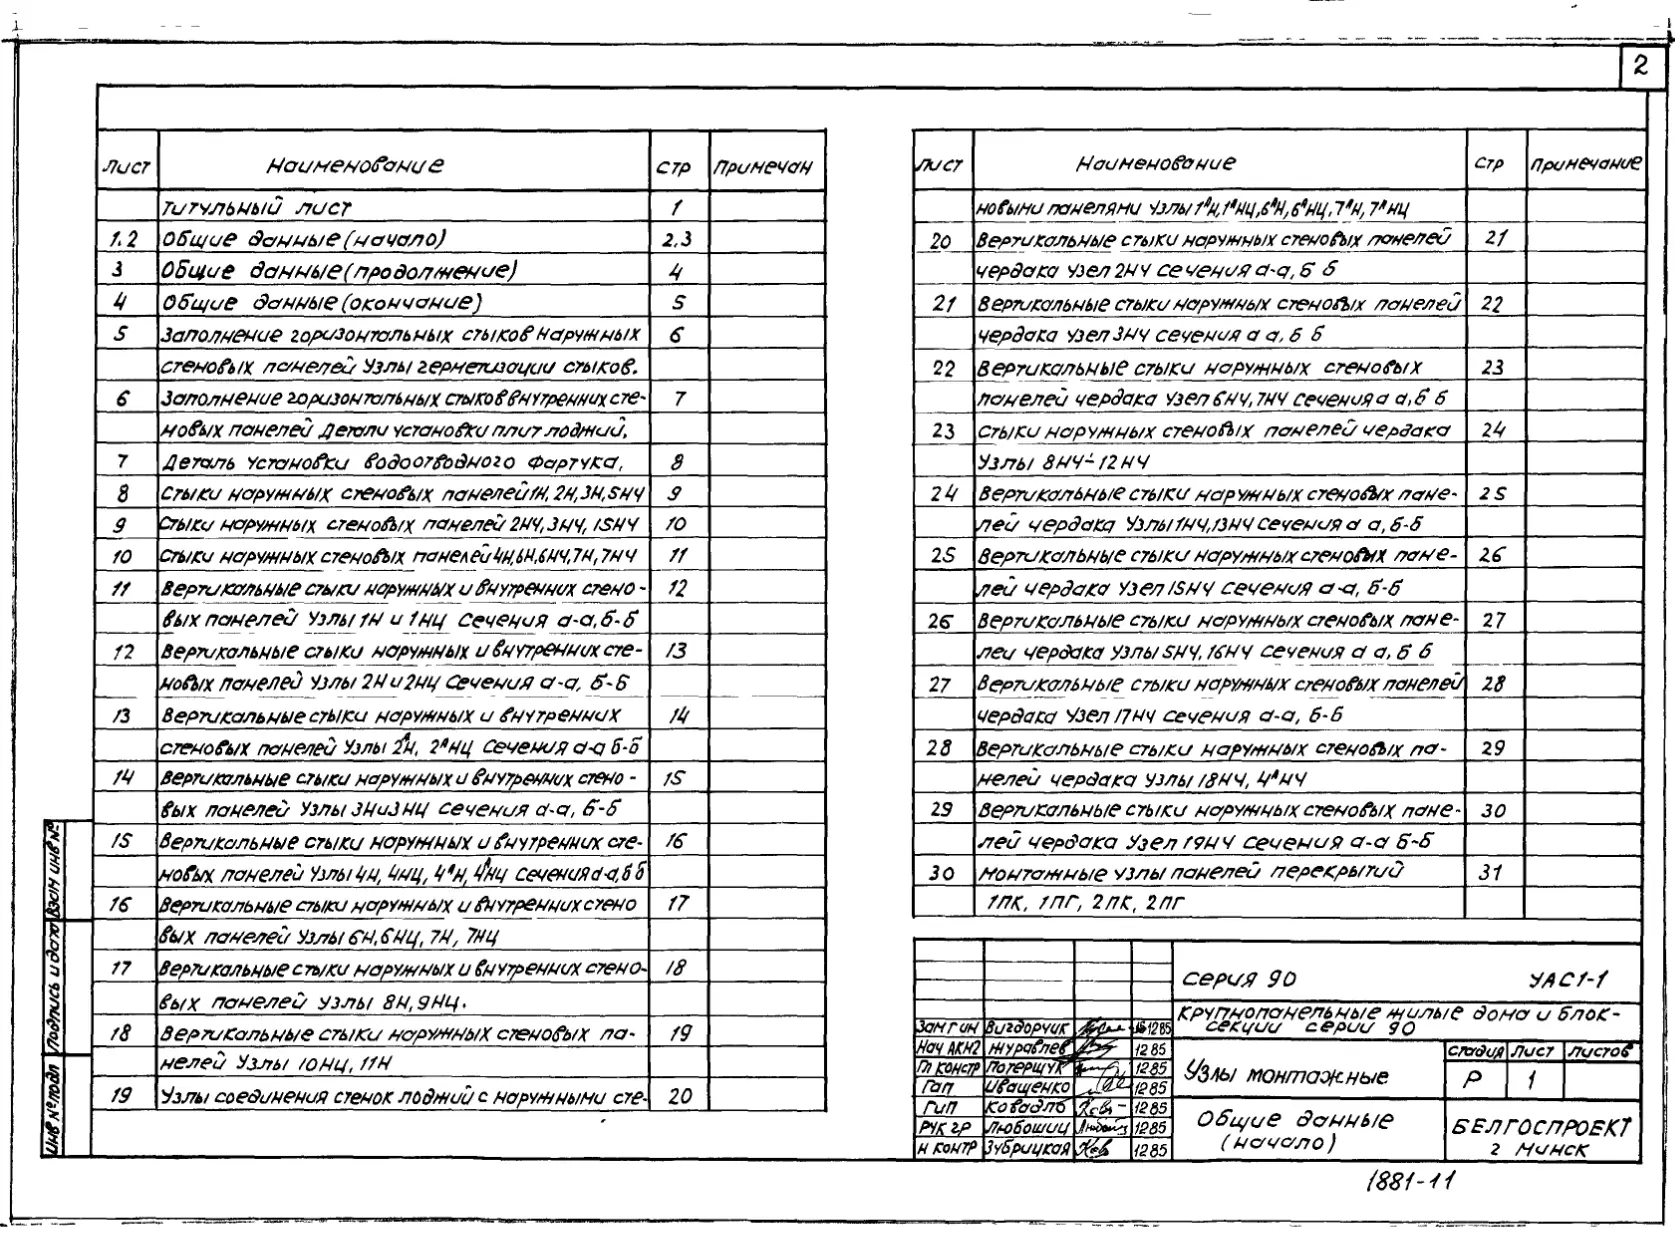 2
Лист Наименование Стр Примечан
Титульный лист 1
1.2 Общие данные (начало) 2.3
3 Общие данные (продолжение) 4
4 Общие данные (окончание) 5
5 Заполнение горизонтальных стыков наружных 6
стеновых панелей Узлы герметизации стыков.
6 Заполнение горизонтальных стыков внутренних сте- 7
новых панелей Детали установки плит лоджий.
7 Деталь установки водоотводного фартука. 8
8 Стыки наружных стеновых панелей 1Н, 2Н, 3Н, 5НЧ 9
9 Стыки наружных стеновых панелей 2НЧ, 3НЧ, 15НЧ 10
10 Стыки наружных стеновых панелей 4Н, 6Н, 6НЧ, 7Н, 7НЧ 11
11 Вертикальные стыки наружных и внутренних стено- 12
вых панелей Узлы 1Н и 1НЦ Сечения а-а, б-б
12 Вертикальные стыки наружных и внутренних сте- 13
новых панелей Узлы 2Н и 2НЦ Сечения а-а, б-б
13 Вертикальные стыки наружных и внутренних 14
стеновых панелей Узлы 2ᴬН, 2ᴬНЦ Сечения а-а б-б
14 Вертикальные стыки наружных и внутренних стено- 15
вых панелей Узлы 3Н и 3НЦ Сечения а-а, б-б
15 Вертикальные стыки наружных и внутренних сте- 16
новых панелей Узлы 4Н, 4НЦ, 4ᴬН, 4ᴬНЦ сечения а-а, б б
16 Вертикальные стыки наружных и внутренних стено 17
вых панелей Узлы 6Н, 6НЦ, 7Н, 7НЦ
17 Вертикальные стыки наружных и внутренних стено- 18
вых панелей Узлы 8Н, 9НЦ.
18 Вертикальные стыки наружных стеновых па- 19
нелей Узлы 10НЦ, 11Н
19 Узлы соединения стенок лоджий с наружными сте- 20
Лист Наименование Стр Примечание
новыми панелями Узлы 1ᴬН, 1ᴬНЦ, 6ᴬН, 6ᴬНЦ, 7ᴬН, 7ᴬНЦ
20 Вертикальные стыки наружных стеновых панелей 21
чердака Узел 2НЧ сечения а-а, б б
21 Вертикальные стыки наружных стеновых панелей 22
чердака Узел 3НЧ сечения а а, б б
22 Вертикальные стыки наружных стеновых 23
панелей чердака Узел 6НЧ, 7НЧ Сечения а а, б б
23 Стыки наружных стеновых панелей чердака 24
Узлы 8НЧ-12НЧ
24 Вертикальные стыки наружных стеновых пане- 25
лей чердака Узлы 1НЧ, 13НЧ Сечения а а, б-б
25 Вертикальные стыки наружных стеновых пане- 26
лей чердака Узел 15НЧ Сечения а-а, б-б
26 Вертикальные стыки наружных стеновых пане- 27
лей чердака Узлы 5НЧ, 16НЧ Сечения а а, б б
27 Вертикальные стыки наружных стеновых панелей 28
чердака Узел 17НЧ сечения а-а, б-б
28 Вертикальные стыки наружных стеновых па- 29
нелей чердака Узлы 18НЧ, 4ᴬНЧ
29 Вертикальные стыки наружных стеновых пане- 30
лей чердака Узел 19НЧ Сечения а-а б-б
30 Монтажные узлы панелей перекрытий 31
1ПК, 1ПГ, 2ПК, 2ПГ
Серия 90 УАС1-1
Крупнопанельные жилые дома и блок-
секции серии 90
Зам гин Вигдорчик 1285
Нач АКН2 Журавлев 1285
Гл констр Потерщук 1285
Гап Иващенко 1285
Гип Ковадло 1285
Рук гр Любошиц 1285
Н контр Зубрицкая 1285
Узлы монтажные
Стадия Лист Листов
Р 1
Общие данные
(начало)
БЕЛГОСПРОЕКТ
г Минск
1881-11
Инв № подл Подпись и дата Взам инв №